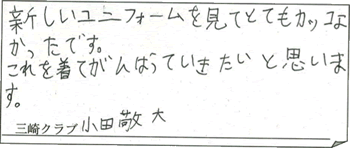 新しいユニフォームを見てとてもカッコよ
かったです。
これを着てがんばっていきたいと思いま
す。
三崎クラブ 小田敬大